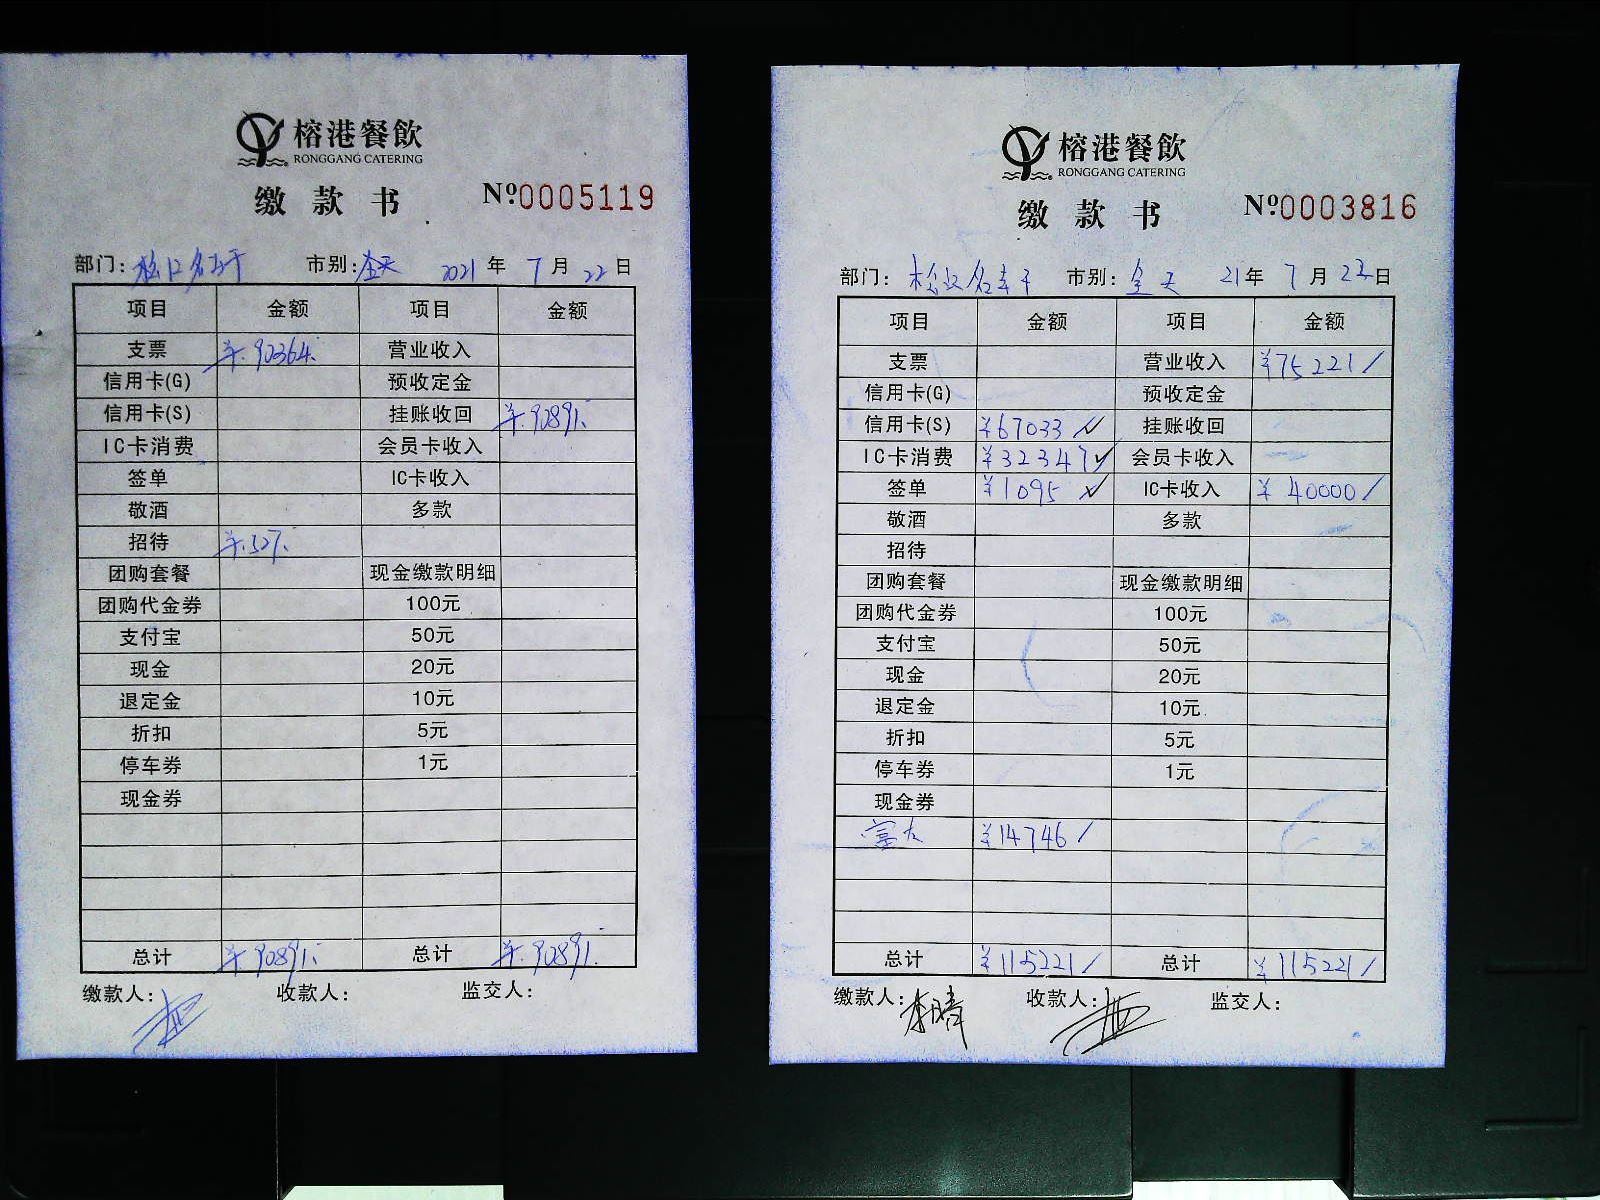 榕港餐飲
RONGGANG CATERING
缴款书 №0005119
部门: 市别:全天 2021年7月22日
项目 金额 项目 金额
支票 ¥90364. 营业收入
信用卡(G) 预收定金
信用卡(S) 挂账收回 ¥90891.
IC卡消费 会员卡收入
签单 IC卡收入
敬酒 多款
招待 ¥527.
团购套餐 现金缴款明细
团购代金券 100元
支付宝 50元
现金 20元
退定金 10元
折扣 5元
停车券 1元
现金券
总计 ¥90891. 总计 ¥90891.
缴款人: 收款人: 监交人:
榕港餐飲
RONGGANG CATERING
缴款书 №0003816
部门: 市别:全天 21年7月23日
项目 金额 项目 金额
支票 营业收入 ¥75221/
信用卡(G) 预收定金
信用卡(S) ¥67033✓ 挂账收回
IC卡消费 ¥32347✓ 会员卡收入
签单 ¥1095✓ IC卡收入 ¥40000/
敬酒 多款
招待
团购套餐 现金缴款明细
团购代金券 100元
支付宝 50元
现金 20元
退定金 10元
折扣 5元
停车券 1元
现金券
富友 ¥14746/
总计 ¥115221/ 总计 ¥115221/
缴款人:李晴 收款人: 监交人: